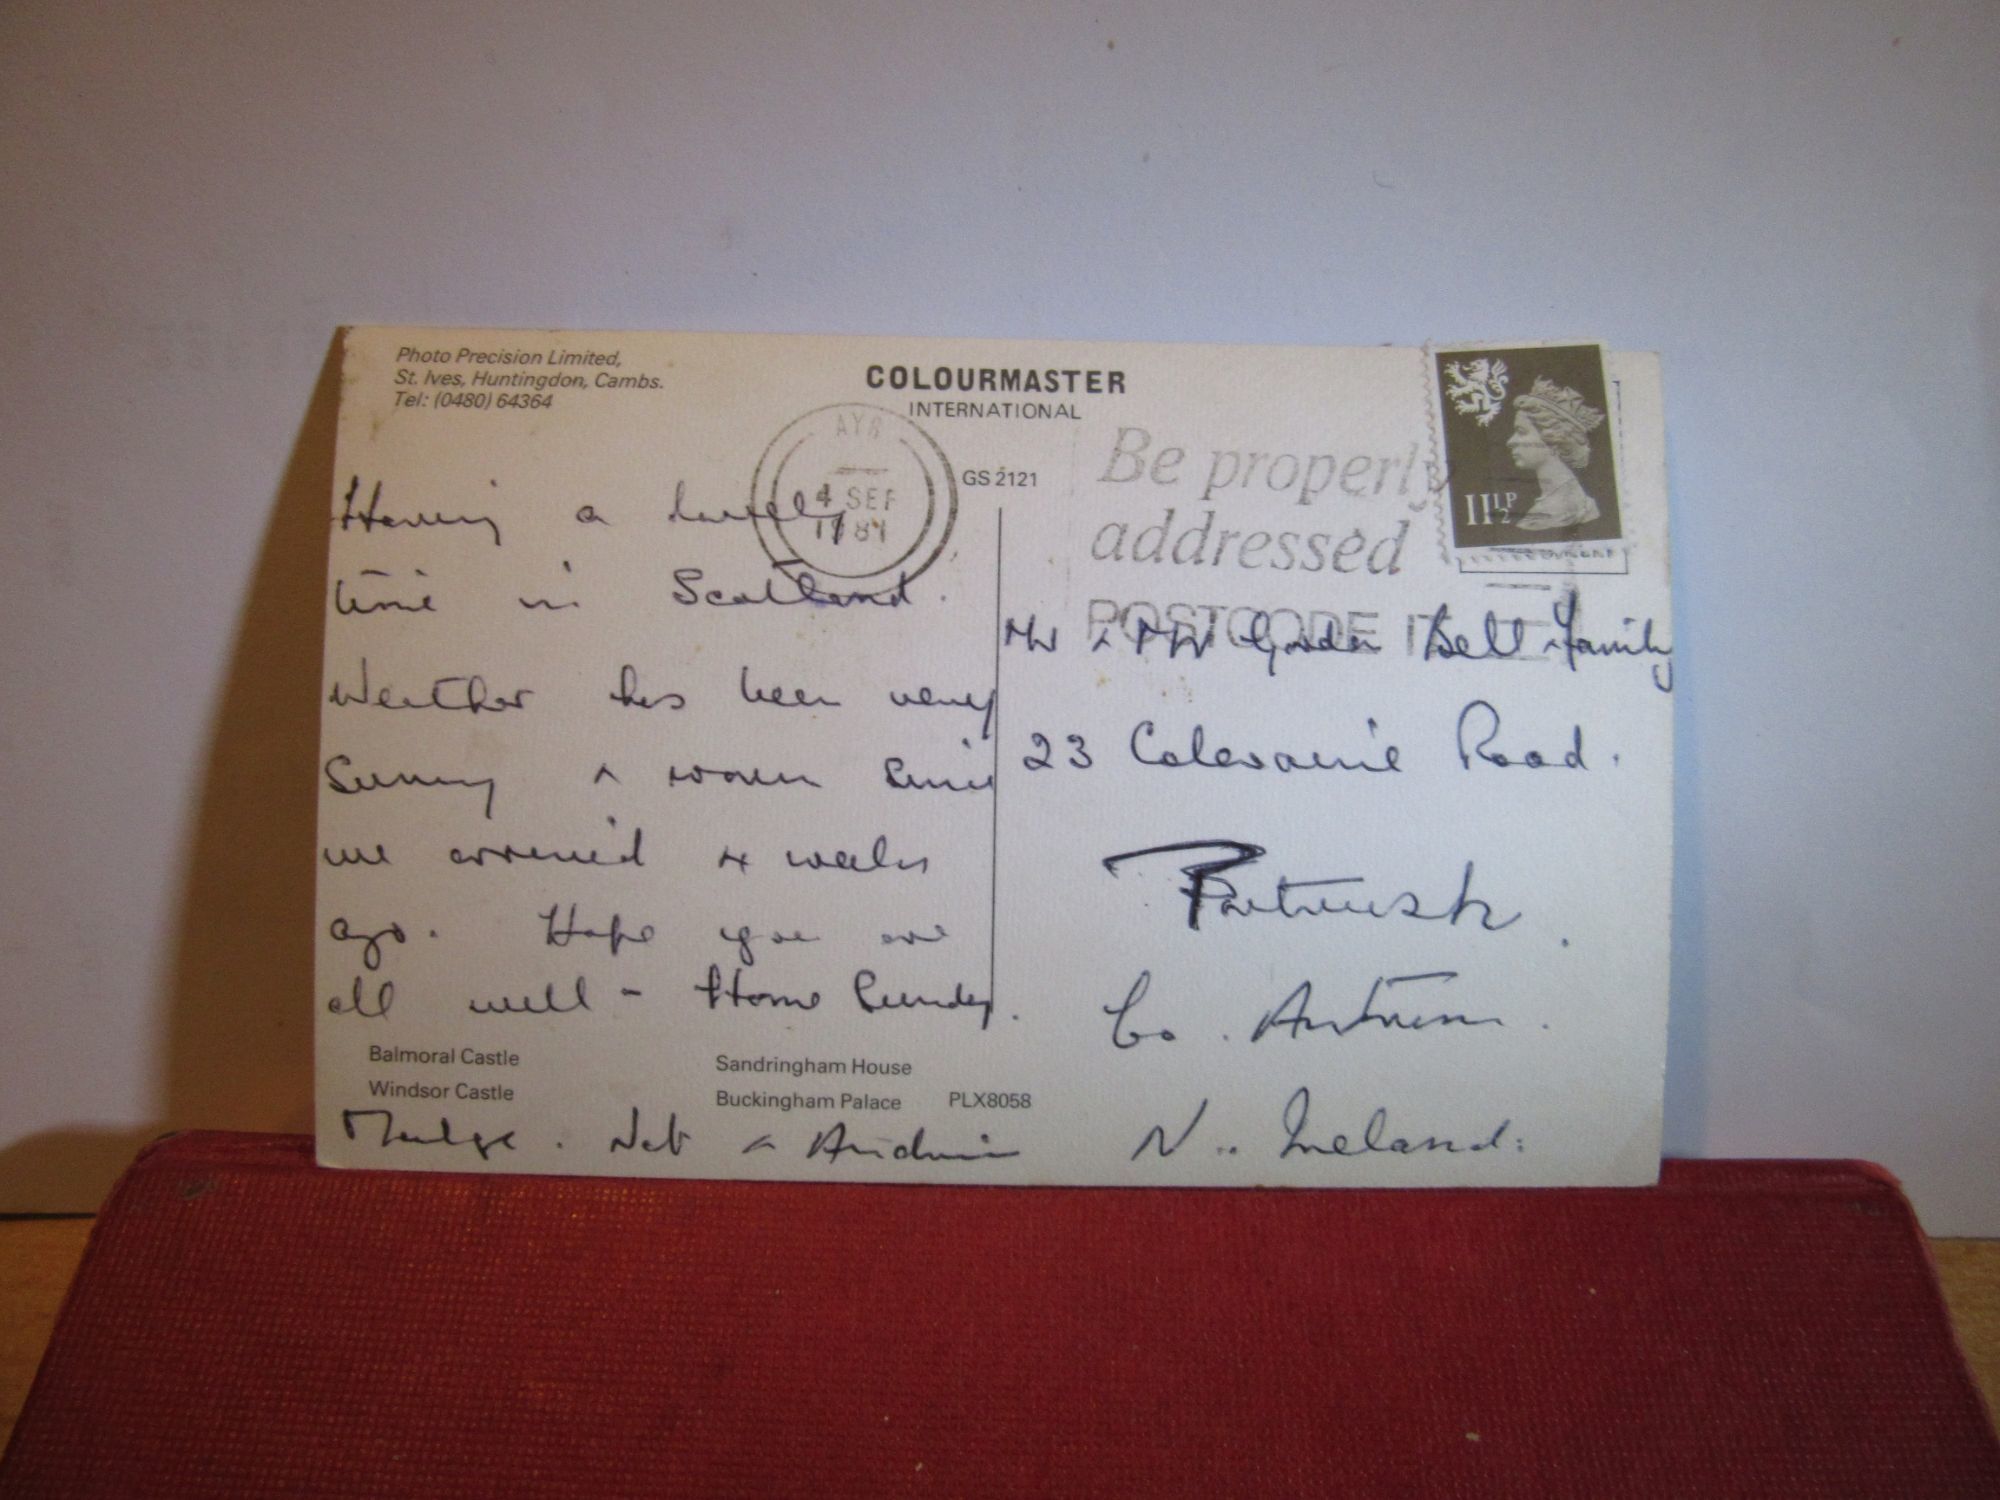 Photo Precision Limited,
St. Ives, Huntingdon, Cambs.
Tel: (0480) 64364
COLOURMASTER
INTERNATIONAL
GS 2121
AYR
4 SEP
1981
Be properly
addressed
POSTCODE IT
11½P
Having a lovely
time in Scotland.
Weather has been very
Sunny & warm since
we arrived 4 weeks
ago. Hope you are
all well - Home Sunday.
Balmoral Castle
Windsor Castle
Sandringham House
Buckingham Palace PLX8058
Madge.
Mr & Mrs Gordon Bell & Family
23 Coleraine Road.
Portrush.
Co. Antrim.
N. Ireland.